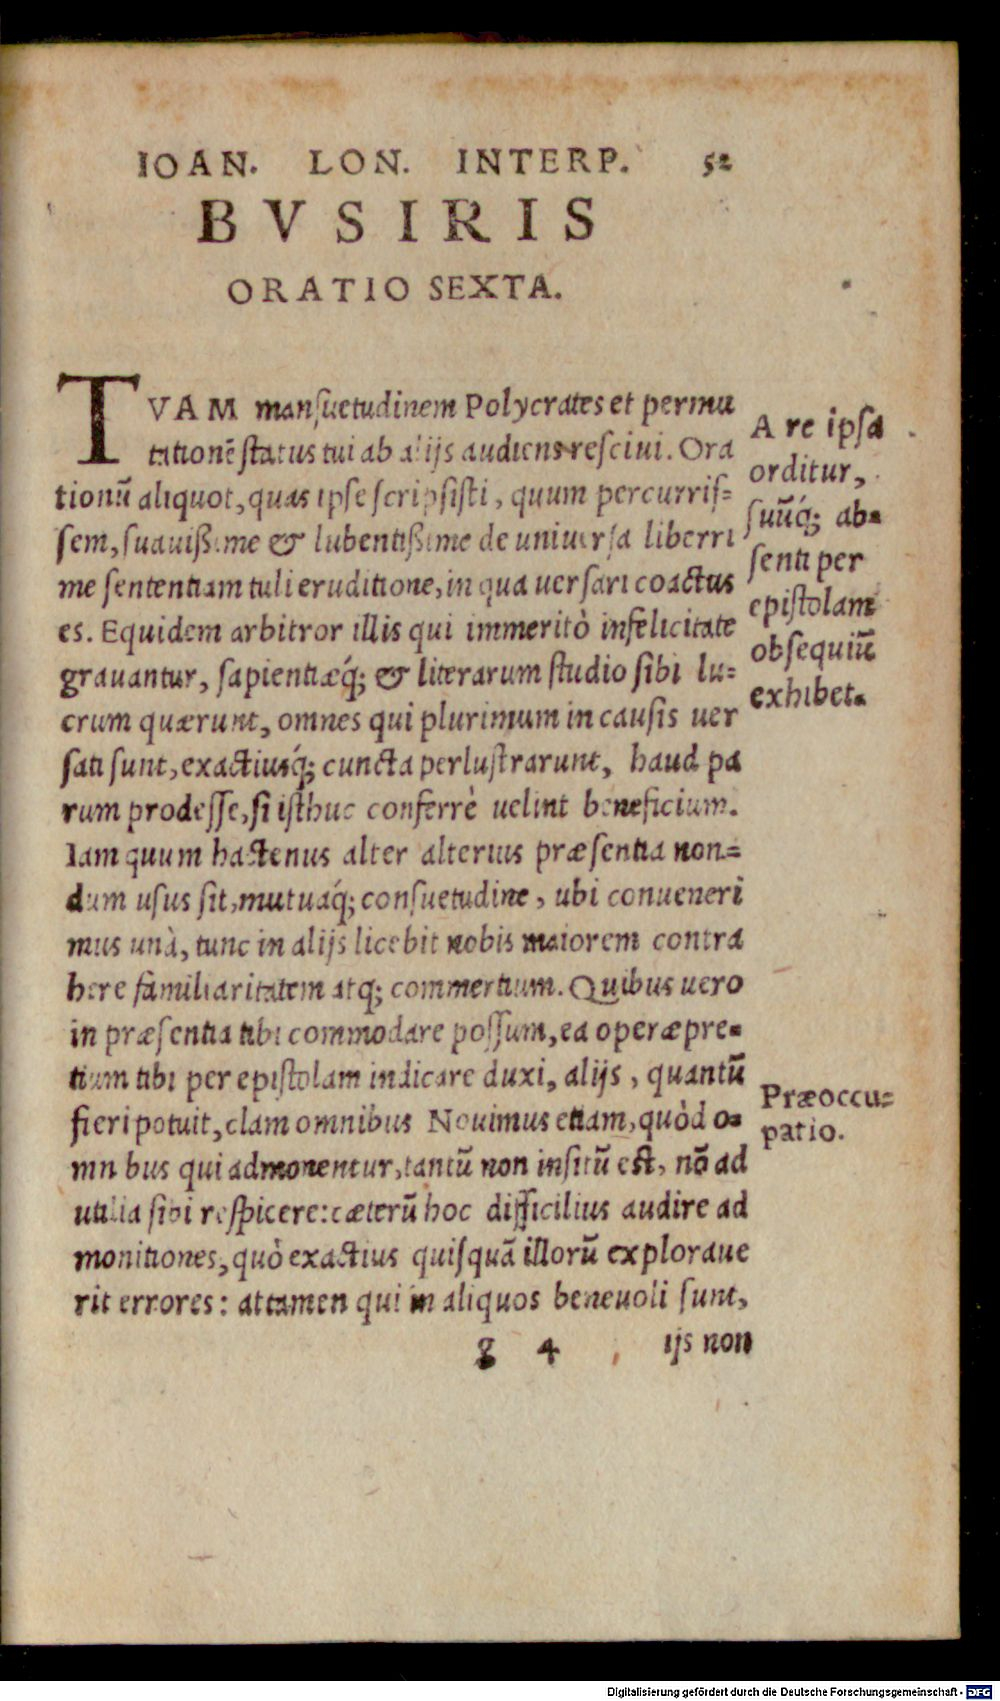 IOAN. LON. INTERP. 52
BVSIRIS
ORATIO SEXTA.
TVAM mansuetudinem Polycrates et permu
tationē status tui ab alijs audiens resciui. Ora
tionū aliquot, quas ipse scripsisti, quum percurris=
sem, suauißime & lubentißime de uniuersa liberri
me sententiam tuli eruditione, in qua uersari coactus
es. Equidem arbitror illis qui immeritò infelicitate
grauantur, sapientiæq́; & literarum studio sibi lu=
crum quærunt, omnes qui plurimum in causis uer
sati sunt, exactiusq́; cuncta perlustrarunt, haud pa
rum prodesse, si isthuc conferrè uelint beneficium.
Iam quum hactenus alter alterius præsentia non=
dum usus sit, mutuaq́; consuetudine, ubi conueneri
mus unà, tunc in alijs licebit nobis maiorem contra
here familiaritatem atq; commertium. Quibus uero
in præsentia tibi commodare possum, ea operæpre=
tium tibi per epistolam indicare duxi, alijs, quantū
fieri potuit, clam omnibus Nouimus etiam, quòd o=
mn bus qui admonentur, tantū non insitū est, nō ad
utilia sibi respicere: cæterū hoc difficilius audire ad
monitiones, quò exactius quisquā illorū exploraue
rit errores: attamen qui in aliquos beneuoli sunt,
g 4 ijs non
A re ipsa
orditur,
suūq́; ab=
senti per
epistolam
obsequiū
exhibet.
Præoccu=
patio.
Digitalisierung gefördert durch die Deutsche Forschungsgemeinschaft - DFG